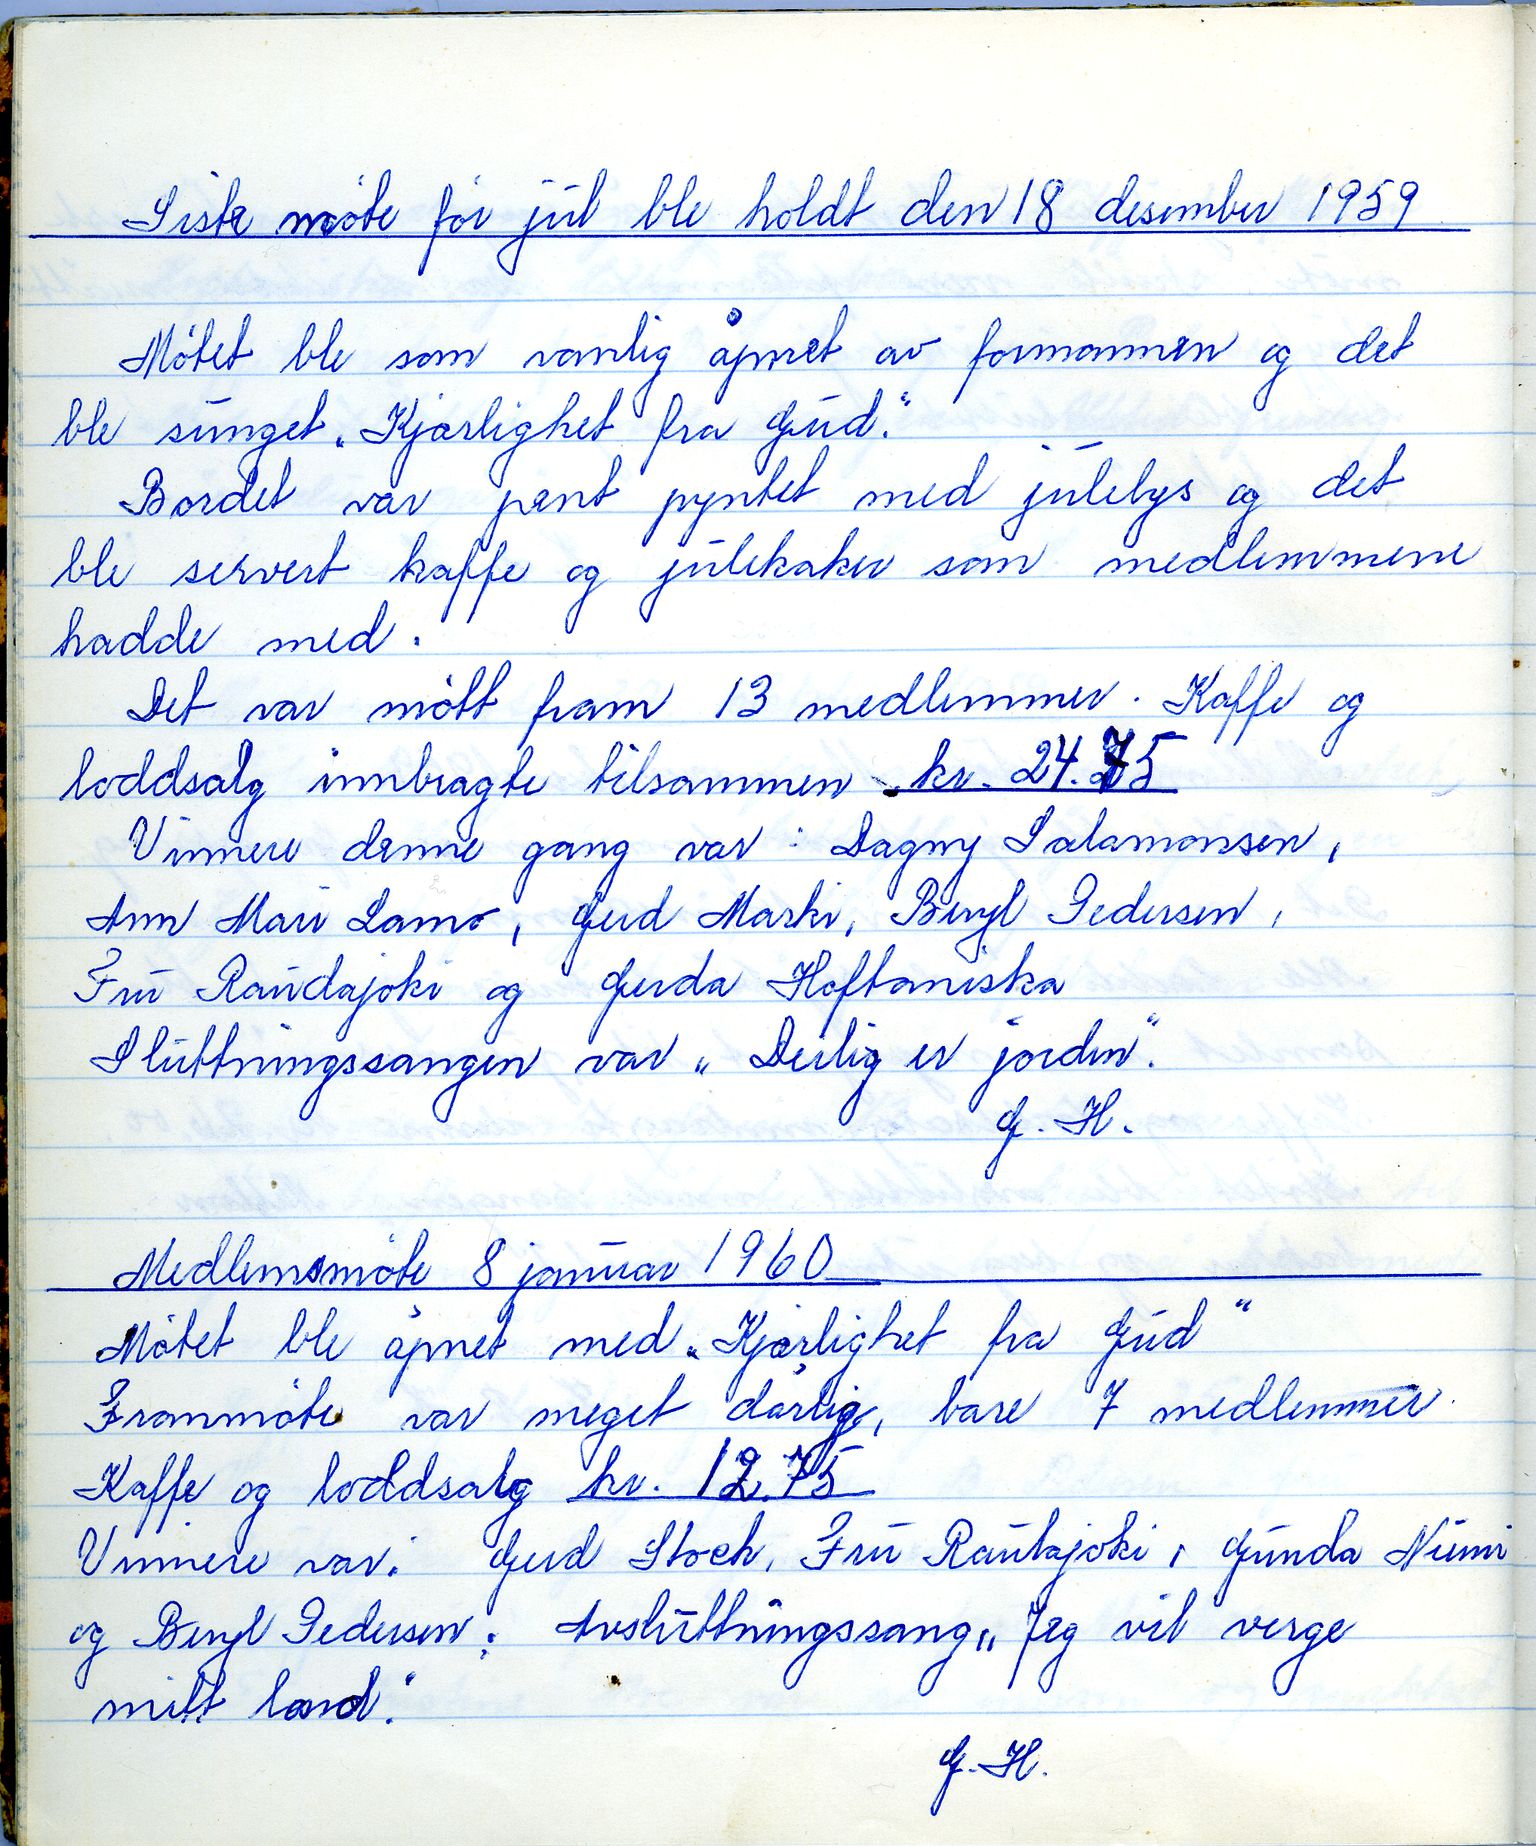 Siste møte før jul ble holdt den 18 desember 1959
Møtet ble som vanlig åpnet av formannen og det
ble sunget „Kjærlighet fra Gud."
Bordet var pent pyntet med julelys og det
ble servert kaffe og julekaker som medlemmene
hadde med.
Det var møtt fram 13 medlemmer. Kaffe og
loddsalg innbragte tilsammen kr. 24.75
Vinnere denne gang var: Dagny Salamonsen,
Ann Mari Lamo, Gerd Marki, Beryl Pedersen,
Fru Raudajoki og Gerda Hoftaniska
Sluttningssangen var „Deilig er jorden".
G. H.
Medlemsmøte 8 januar 1960
Møtet ble åpnet med „Kjærlighet fra Gud"
Frammøte var meget dårlig, bare 7 medlemmer.
Kaffe og loddsalg kr. 12.75
Vinnere var: Gerd Stock, Fru Rautajoki, Gunda Niemi
og Beryl Pedersen. Avsluttningssang „Jeg vil verge
mitt land."
G. H.